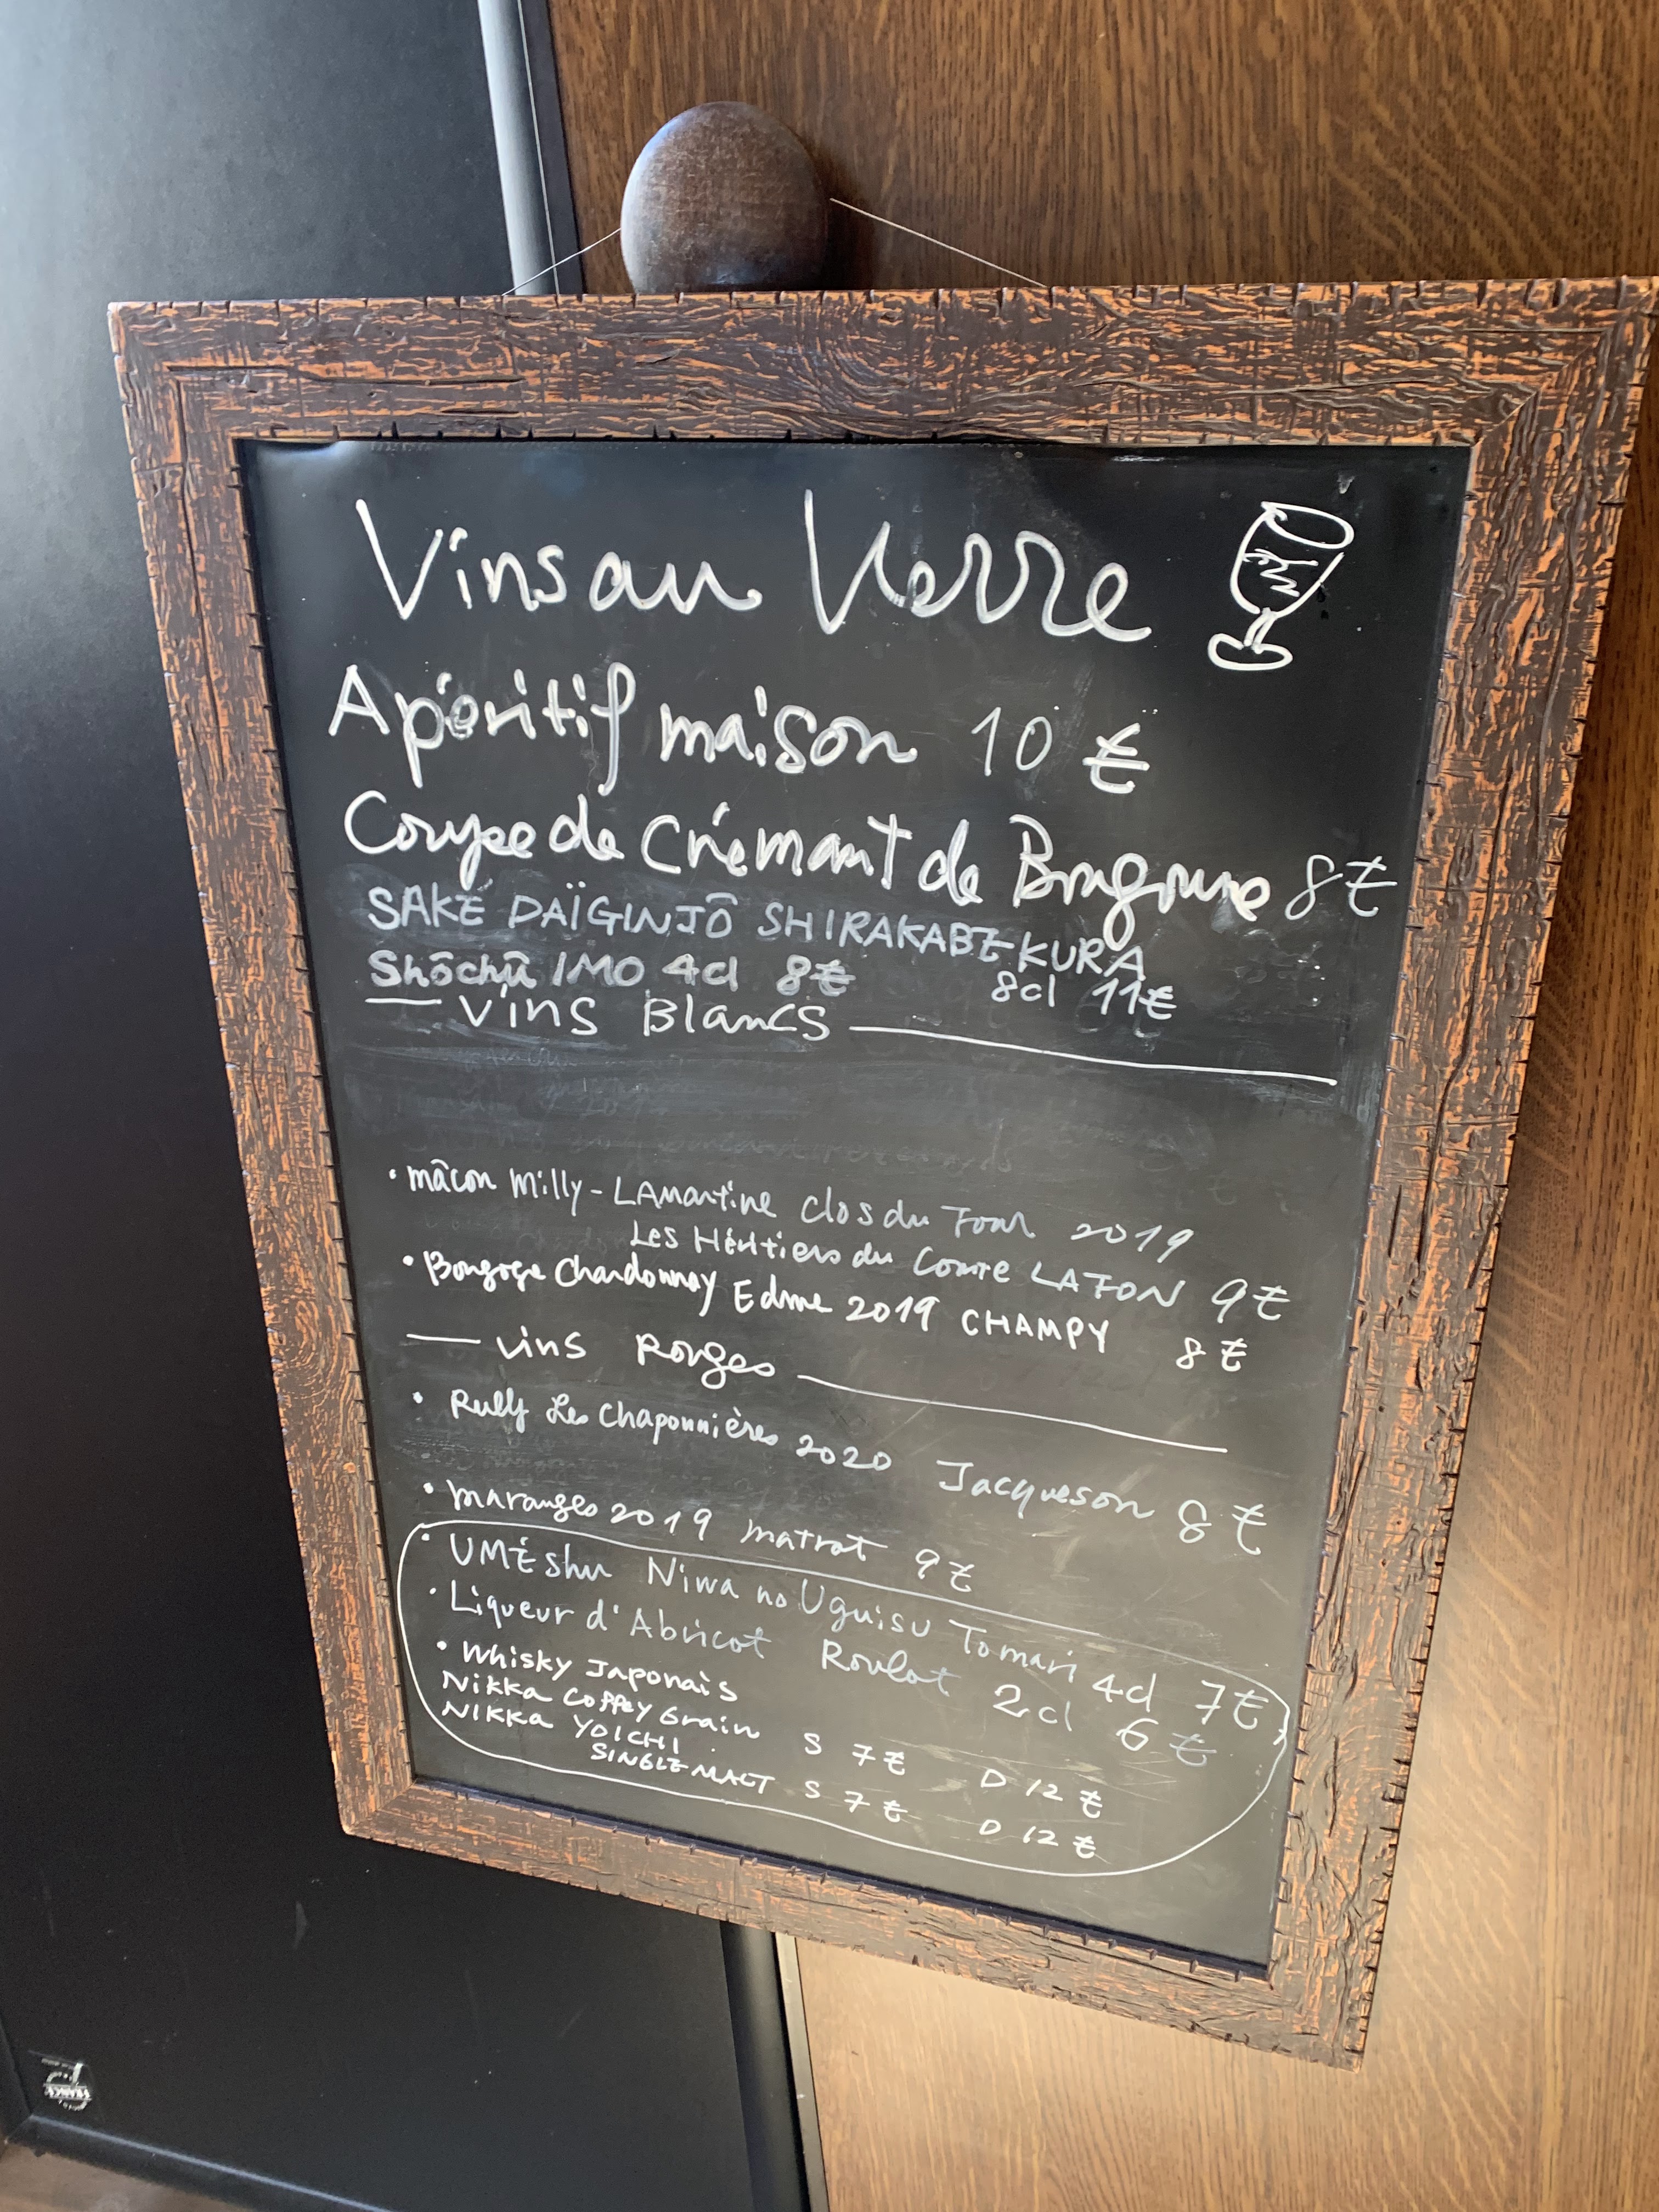 Vins au Verre
Apéritif maison 10 €
Coupe de Crémant de Bourgogne 8€
SAKÉ DAÏGINJÔ SHIRAKABE KURA
8cl 11€
Shôchû IMO 4cl 8€
Vins Blancs
• Mâcon Milly-LAmartine Clos du Four 2019
Les Héritiers du Comte LAFON 9€
• Bourgogne Chardonnay Edme 2019 CHAMPY 8€
Vins Rouges
• Rully Les Chaponnières 2020 Jacqueson 8€
• Maranges 2019 Matrot 9€
• UMÉshu Niwa no Uguisu Tomari 4cl 7€
• Liqueur d'Abricot Roulot 2cl 6€
• Whisky Japonais
Nikka Coffey Grain S 7€ D 12€
NIKKA YOICHI
SINGLE MALT S 7€ D 12€